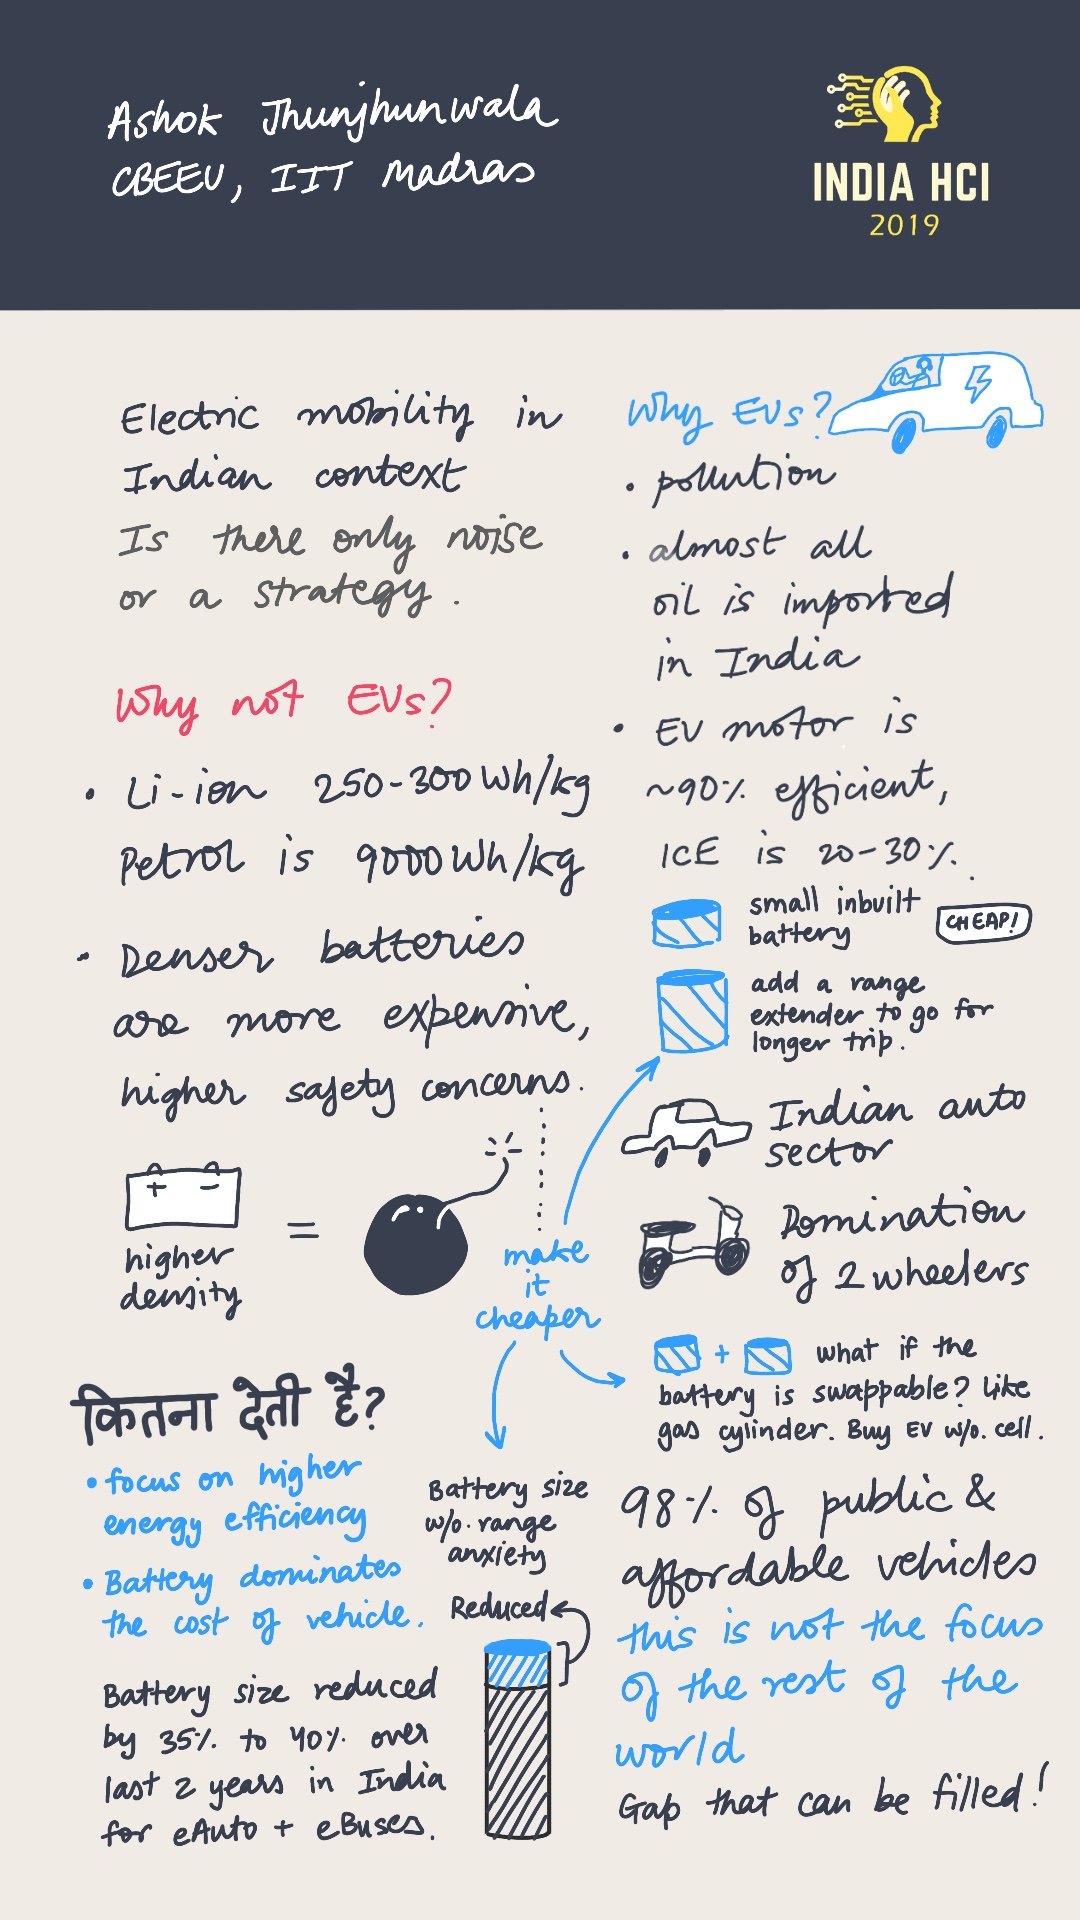 Ashok Jhunjhunwala
CBEEV, IIT Madras
INDIA HCI
2019
Electric mobility in
Indian context
Is there only noise
or a strategy.
Why not EVs?
• Li-ion 250-300 Wh/kg
Petrol is 9000 Wh/kg
• Denser batteries
are more expensive,
higher safety concerns.
+ -
higher
density
=
make
it
cheaper
कितना देती है?
• focus on higher
energy efficiency
• Battery dominates
the cost of vehicle.
Battery size reduced
by 35% to 40% over
last 2 years in India
for eAuto + eBuses.
Battery size
w/o. range
anxiety
Reduced
Why EVs?
• pollution
• almost all
oil is imported
in India
• EV motor is
~90% efficient,
ICE is 20-30%.
small inbuilt
battery
CHEAP!
add a range
extender to go for
longer trip.
Indian auto
sector
Domination
of 2 wheelers
+ what if the
battery is swappable? Like
gas cylinder. Buy EV w/o. cell.
98% of public &
affordable vehicles
this is not the focus
of the rest of the
world
Gap that can be filled!